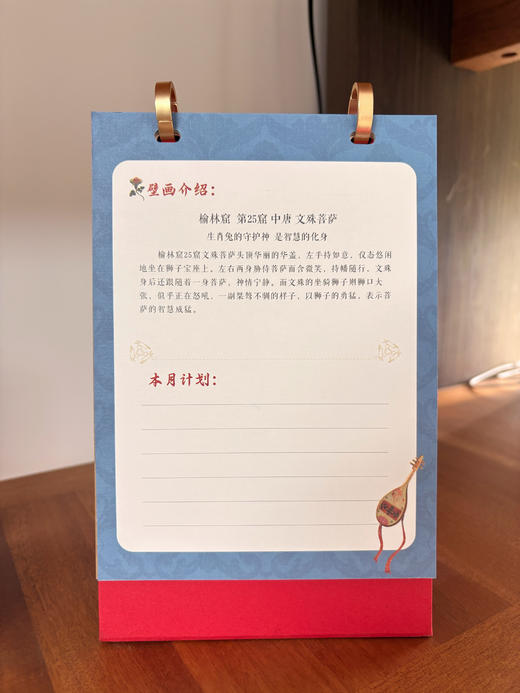 壁画介绍：
榆林窟 第25窟 中唐 文殊菩萨
生肖兔的守护神 是智慧的化身
榆林窟25窟文殊菩萨头顶华丽的华盖，左手持如意，仪态悠闲
地坐在狮子宝座上。左右两身胁侍菩萨面含微笑，持幡随行，文殊
身后还跟随着一身菩萨，神情宁静。而文殊的坐骑狮子则狮口大
张，似乎正在怒吼，一副桀骜不驯的样子，以狮子的勇猛，表示菩
萨的智慧威猛。
本月计划：